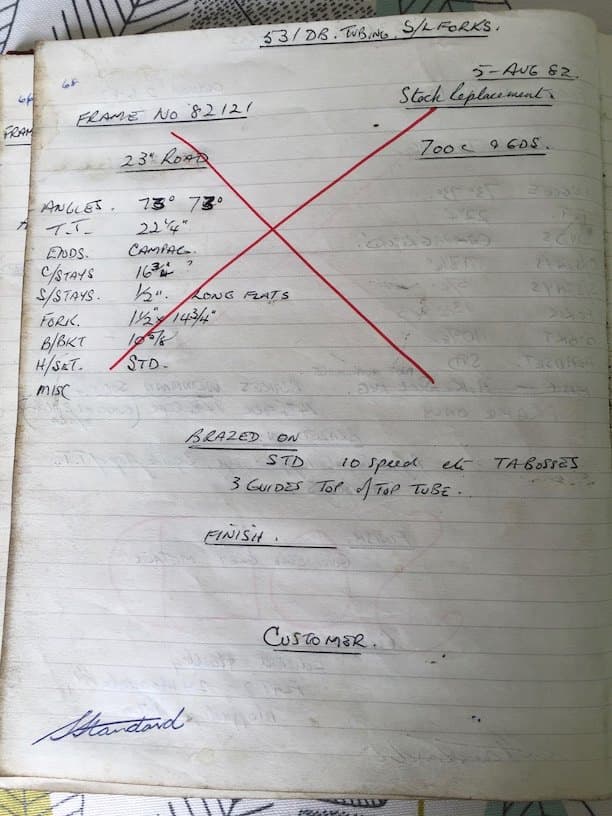 531 DB. TUBING. S/L FORKS.
68
5-AUG 82.
FRAME No 82121
Stock Replacement.
23" ROAD
700c & GDS.
ANGLES. 73° 73°
T.T. 22 1/4"
ENDS. CAMPAG.
C/STAYS 16 3/4"
S/STAYS. 1/2". LONG FLATS
FORK. 1 1/2" x 14 3/4"
B/BKT 10 5/8
H/SET. STD.
MISC
BRAZED ON
STD 10 speed etc TABOSSES
3 GUIDES TOP of TOP TUBE.
FINISH.
CUSTOMER.
Standard
FRAM